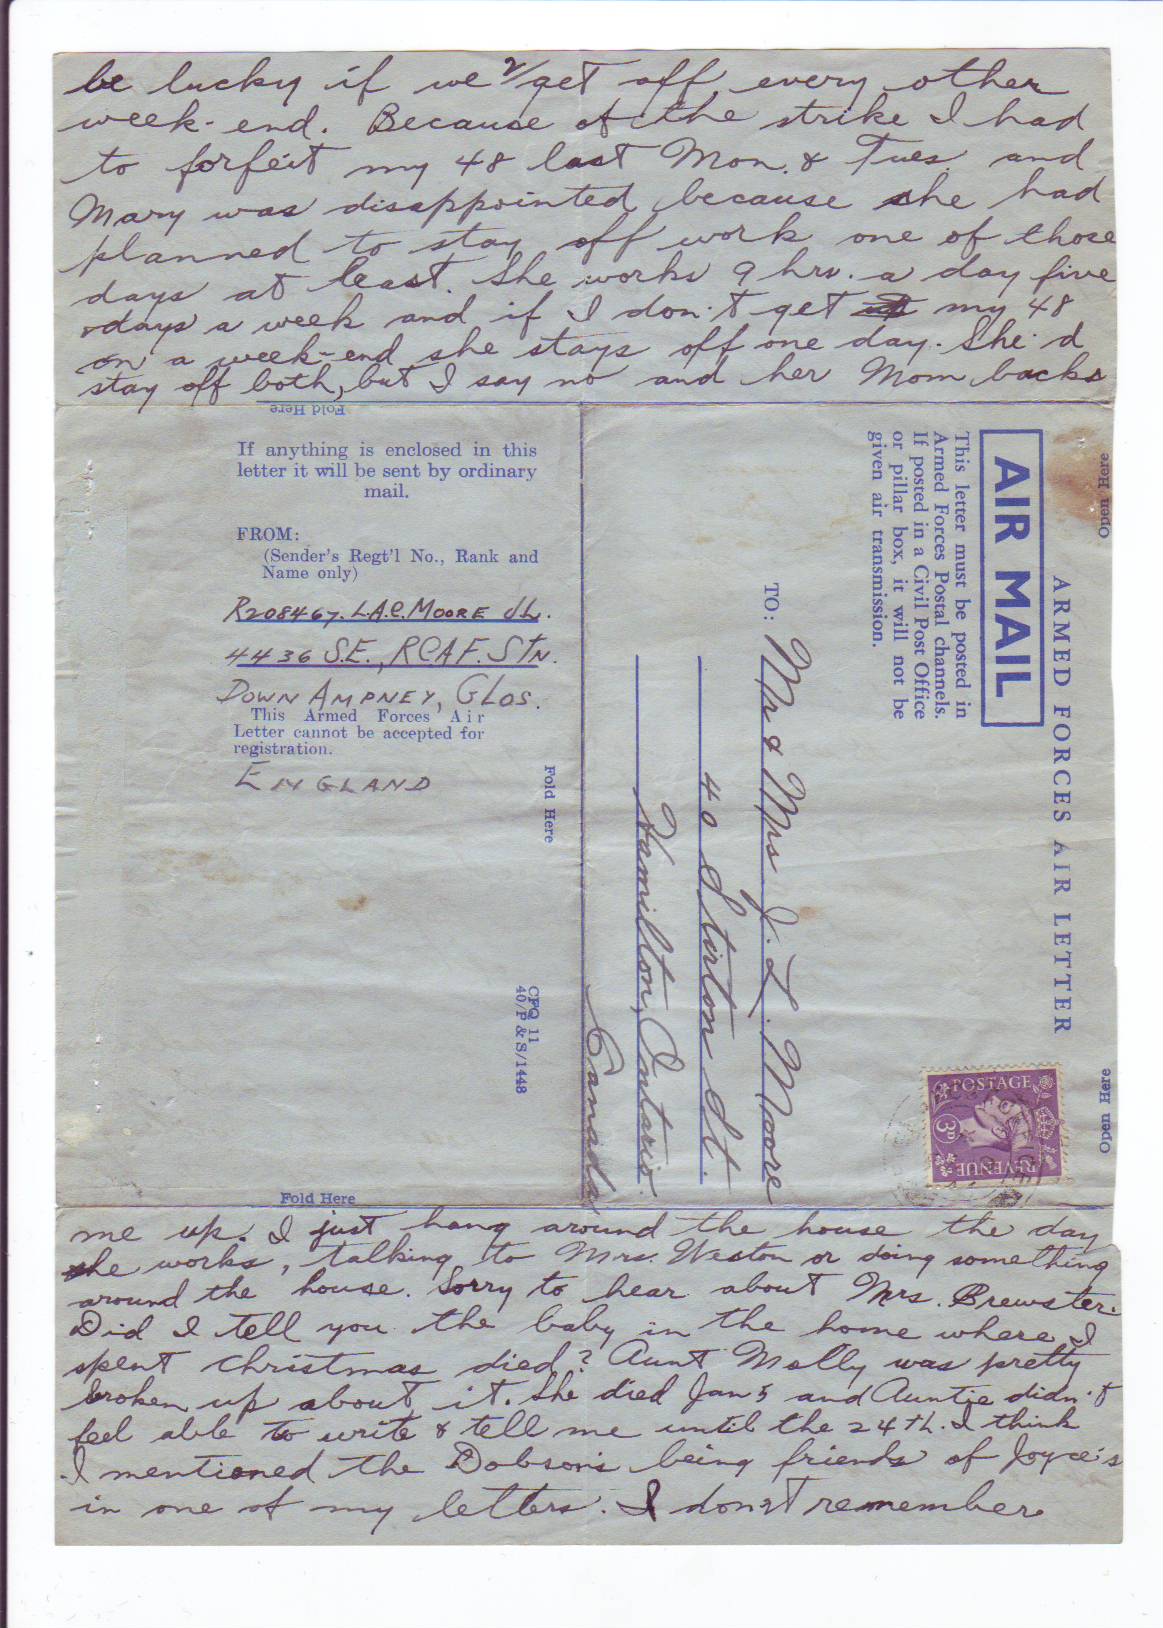 2/
be lucky if we get off every other
week-end. Because of the strike I had
to forfeit my 48 last Mon. & Tues. and
Mary was disappointed because she had
planned to stay off work one of those
days at least. She works 9 hrs. a day five
days a week and if I don't get my 48
on a week-end she stays off one day. She'd
stay off both, but I say no and her Mom backs
Fold Here
If anything is enclosed in this
letter it will be sent by ordinary
mail.
FROM:
(Sender's Regt'l No., Rank and
Name only)
R208467. L.A.C. MOORE J.L.
4436 S.E., RCAF. STN.
DOWN AMPNEY, GLOS.
This Armed Forces Air
Letter cannot be accepted for
registration.
ENGLAND
Fold Here
CFQ 11
40/P & S/1448
Fold Here
Open Here
Open Here
ARMED FORCES AIR LETTER
AIR MAIL
This letter must be posted in
Armed Forces Postal channels.
If posted in a Civil Post Office
or pillar box, it will not be
given air transmission.
POSTAGE
3D
REVENUE
TO: Mr & Mrs J. L. Moore
40 Stirton St.
Hamilton, Ontario.
Canada
me up. I just hang around the house the day
she works, talking to Mrs. Weston or doing something
around the house. Sorry to hear about Mrs. Brewster.
Did I tell you the baby in the home where I
spent Christmas died? Aunt Molly was pretty
broken up about it. She died Jan 5 and Auntie didn't
feel able to write & tell me until the 24th. I think
I mentioned the Dobson's being friends of Joyce's
in one of my letters. I don't remember